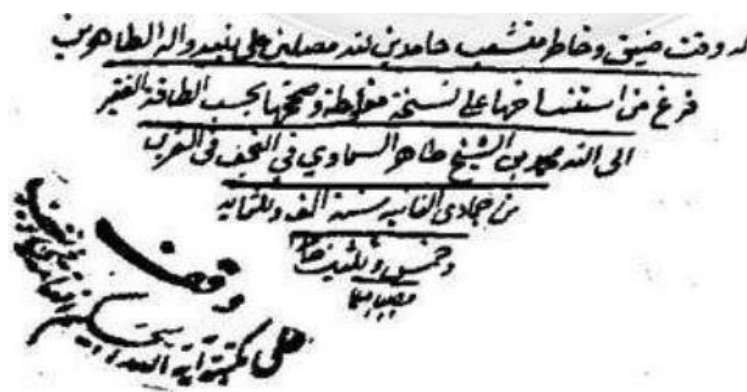 وقت ضيق وخاطر متشعب حامدين لله مصلين على نبيه واله الطاهرين
فرغ من استنساخها على نسخة مغلوطة وصححها بحسب الطاقة الفقير
الى الله محمد بن الشيخ طاهر السماوي في النجف في
من جمادى الثانية سنة الف وثلثمايه
وخمس وثلثين
وقف
على مكتبة آية الله الحكيم